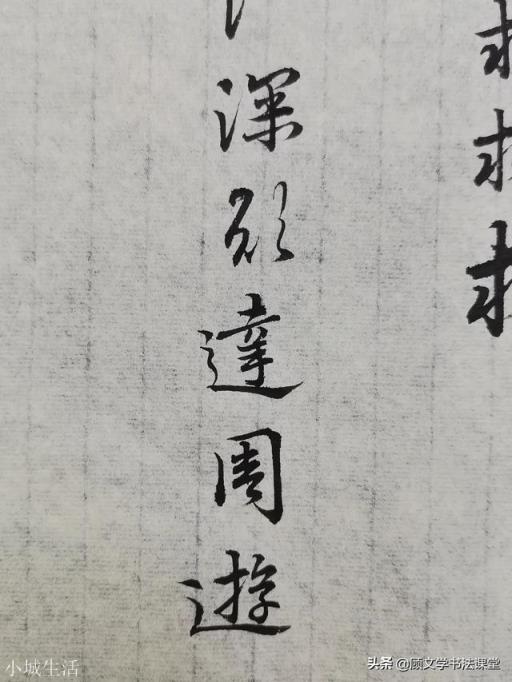 深願達周遊
小城生活
头条 @顾文学书法课堂